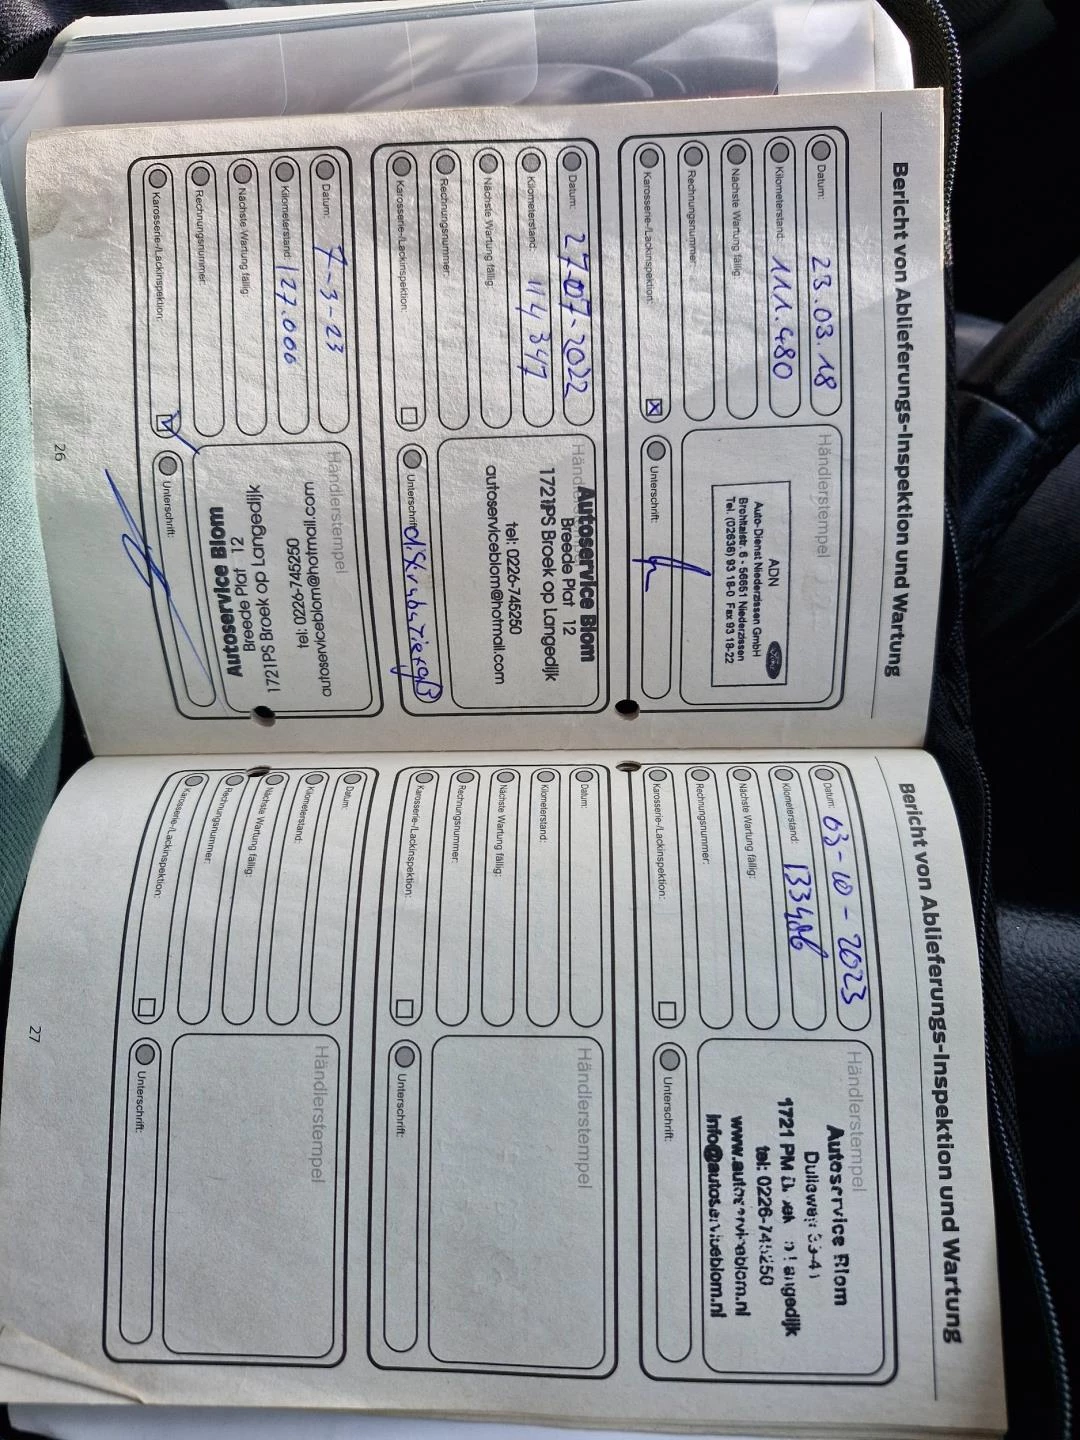 Bericht von Ablieferungs-Inspektion und Wartung
Datum: 23.03.18
Kilometerstand: 111.480
Nächste Wartung fällig:
Rechnungsnummer:
Karosserie-/Lackinspektion:
Händlerstempel
ADN
Auto-Dienst Niederzissen GmbH
Brohltalstr. 6 - 56651 Niederzissen
Tel. (02636) 93 18-0 Fax 93 18-22
Unterschrift:
Datum: 27-07-2022
Kilometerstand: 114347
Nächste Wartung fällig:
Rechnungsnummer:
Karosserie-/Lackinspektion:
Autoservice Blom
Breede Plat 12
1721PS Broek op Langedijk
tel: 0226-745250
autoserviceblom@hotmail.com
Unterschrift:
Datum: 7-3-23
Kilometerstand: 127.006
Nächste Wartung fällig:
Rechnungsnummer:
Karosserie-/Lackinspektion:
Händlerstempel
autoserviceblom@hotmail.com
tel: 0226-745250
1721PS Broek op Langedijk
Breede Plat 12
Autoservice Blom
Unterschrift:
26
Bericht von Ablieferungs-Inspektion und Wartung
Datum: 03-10-2023
Kilometerstand: 133486
Nächste Wartung fällig:
Rechnungsnummer:
Karosserie-/Lackinspektion:
Händlerstempel
Autoservice Blom
1721 PM
tel: 0226-745250
www.autoserviceblom.nl
info@autoserviceblom.nl
Unterschrift:
Datum:
Kilometerstand:
Nächste Wartung fällig:
Rechnungsnummer:
Karosserie-/Lackinspektion:
Händlerstempel
Unterschrift:
Datum:
Kilometerstand:
Nächste Wartung fällig:
Rechnungsnummer:
Karosserie-/Lackinspektion:
Händlerstempel
Unterschrift:
27